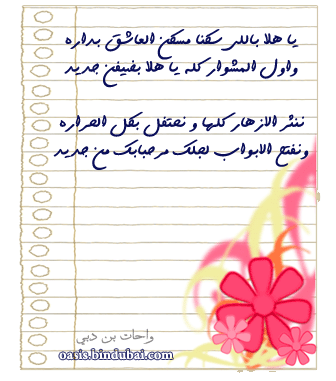 يا هلا باللي سكنا مسكن العاشق بداره
واول المشوار كله يا هلا بضيفن جديد
ننثر الازهار كلها و نحتفل بكل الحراره
ونفتح الابواب لجلك مرحبابك من جديد
واحات بن دبي
oasis.bindubai.com